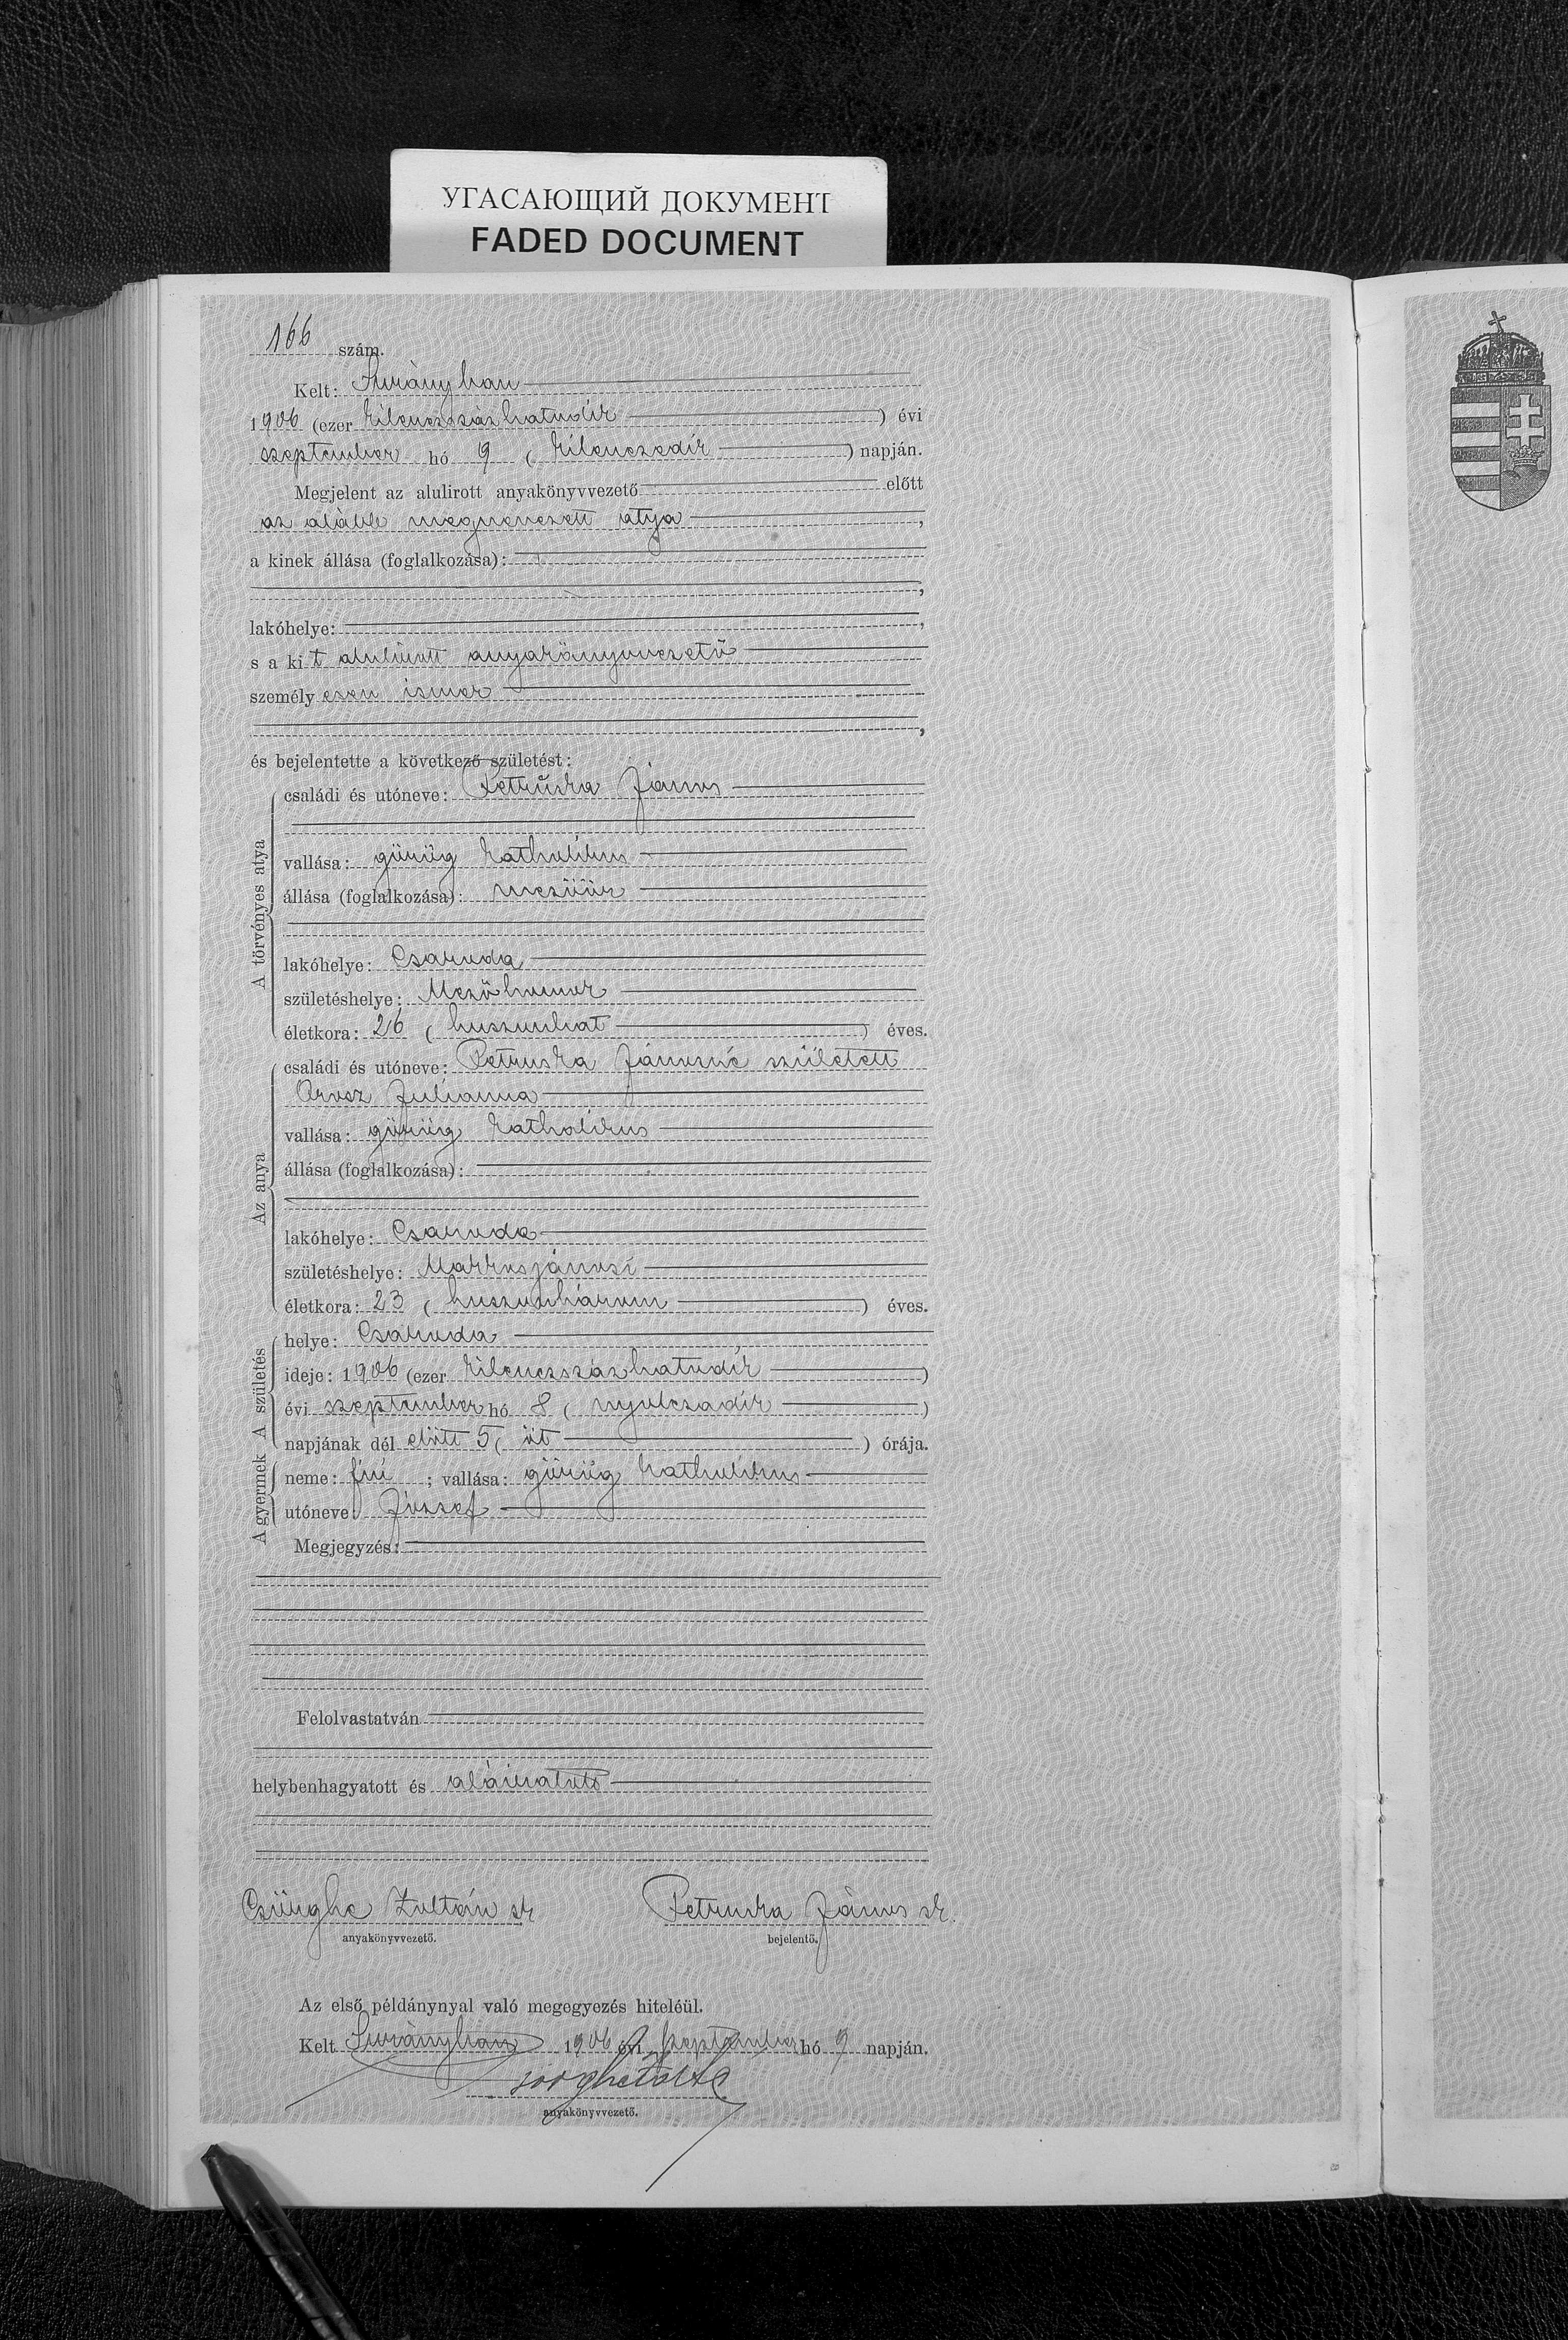 УГАСАЮЩИЙ ДОКУМЕНТ
FADED DOCUMENT
166 szám.
Kelt: Surányban
1906 (ezer kilenczszázhatodik) évi
szeptember hó 9 (kilenczedik) napján.
Megjelent az alulirott anyakönyvvezető előtt
az alább megnevezett atya,
a kinek állása (foglalkozása):
,
lakóhelye: ,
s a kit alulirott anyakönyvvezető
személyesen ismer
,
és bejelentette a következő születést:
A törvényes atya
családi és utóneve: Petruska János
vallása: görög katholikus
állása (foglalkozása): mezőőr
lakóhelye: Csaroda
születéshelye: Mezőhomok
életkora: 26 (huszonhat) éves.
Az anya
családi és utóneve: Petruska Jánosné született
Orosz Julianna
vallása: görög katholikus
állása (foglalkozása):
lakóhelye: Csaroda
születéshelye: Markusjánosi
életkora: 23 (huszonhárom) éves.
A születés
helye: Csaroda
ideje: 1906 (ezer kilenczszázhatodik)
évi szeptember hó 8 (nyolczadik)
napjának dél előtt 5 (öt) órája.
A gyermek
neme: fiú; vallása: görög katholikus
utóneve: József
Megjegyzés:
Felolvastatván
helybenhagyatott és aláiratott
Csörghe Zoltán sk Petruska János sk.
anyakönyvvezető. bejelentő.
Az első példánynyal való megegyezés hiteléül.
Kelt Surányban 1906 évi szeptember hó 9 napján.
anyakönyvvezető.